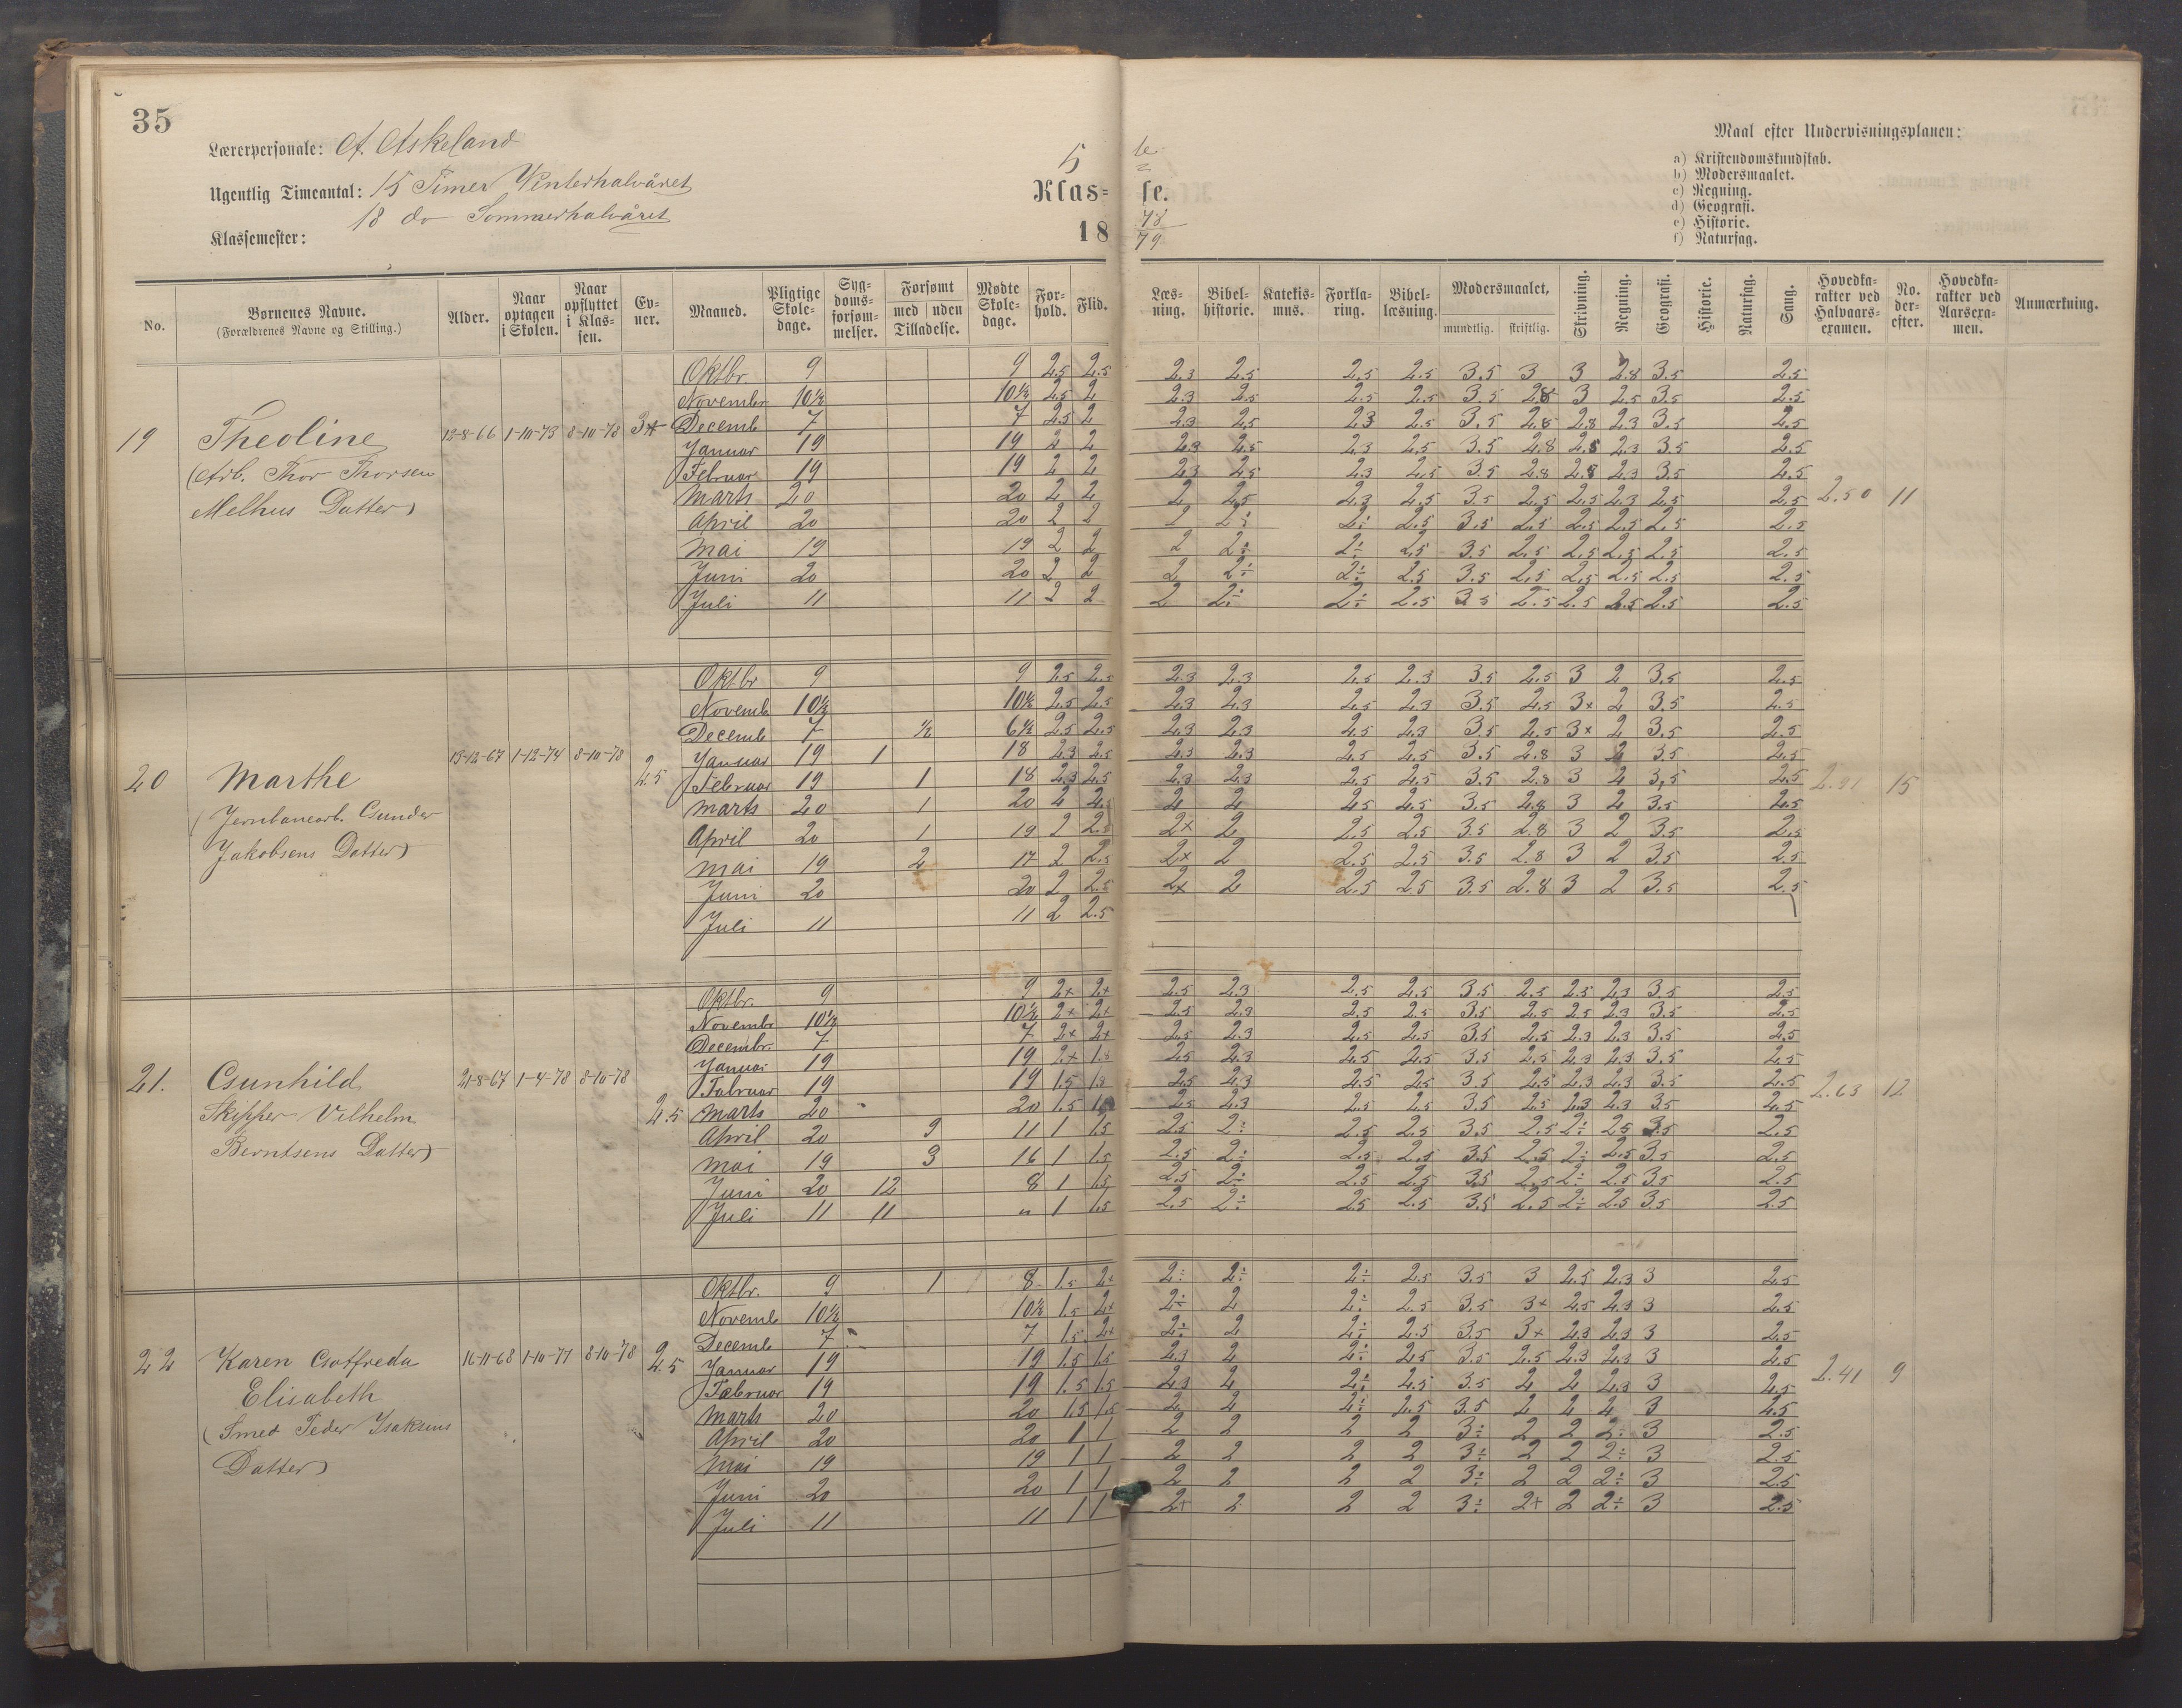 35
Lærerpersonale: A. Askeland
Ugentlig Timeantal: 15 Timer Vinterhalvåret
18 do Sommerhalvåret
Klassemester:
5 te
Klas= se.
18 78/79
Maal efter Undervisningsplanen:
a) Kristendomskundskab.
b) Modersmaalet.
c) Regning.
d) Geografi.
e) Historie.
f) Naturfag.
No. Børnenes Navne. (Forældrenes Navne og Stilling.) Alder. Naar optagen i Skolen. Naar opflyttet i Klassen. Evner. Maaned. Pligtige Skoledage. Sygdomsforsømmelser. Forsømt med uden Tilladelse. Mødte Skoledage. Forhold. Flid. Læsning. Bibelhistorie. Katekismus. Forklaring. Bibellæsning. Modersmaalet, mundtlig. skriftlig. Skrivning. Regning. Geografi. Historie. Naturfag. Sang. Hovedkarakter ved Halvaarsexamen. No. derefter. Hovedkarakter ved Aarsexamen. Anmærkning.
19 Theoline (Arb. Thor Thorsen Melhus Datter) 12-8-66 1-10-73 8-10-78 3+ 2.50 11
Oktbr. 9 9 2.5 2.5 2.3 2.5 2.5 2.5 3.5 3 3 2.8 3.5 2.5
Novembr 10½ 10½ 2.5 2 2.3 2.5 2.5 2.5 3.5 2.8 3 2.5 3.5 2.5
Decemb 7 7 2.5 2 2.3 2.5 2.3 2.5 3.5 2.8 2.8 2.3 3.5 2.5
Januar 19 19 2 2 2.3 2.5 2.3 2.5 3.5 2.8 2.8 2.3 3.5 2.5
Februar 19 19 2 2 2.3 2.5 2.3 2.5 3.5 2.8 2.8 2.3 3.5 2.5
Marts 20 20 2 2 2 2.5 2.3 2.5 3.5 2.5 2.5 2.3 2.5 2.5
April 20 20 2 2 2 2÷ 2÷ 2.5 3.5 2.5 2.5 2.5 2.5 2.5
Mai 19 19 2 2 2 2÷ 2÷ 2.5 3.5 2.5 2.5 2.5 2.5 2.5
Juni 20 20 2 2 2 2÷ 2÷ 2.5 3.5 2.5 2.5 2.5 2.5 2.5
Juli 11 11 2 2 2 2÷ 2÷ 2.5 3.5 2.5 2.5 2.5 2.5 2.5
20 Marthe (Jernbanearb. Gunder Jakobsens Datter) 13-12-67 1-12-74 8-10-78 2.5 15
Oktbr 9 9 2.5 2.5 2.3 2.3 2.5 2.3 3.5 2.5 3 2 3.5 2.5
Novemb. 10½ 10½ 2.5 2.5 2.3 2.3 2.5 2.3 3.5 2.5 3+ 2 3.5 2.5
Decemb 7 ½ 6½ 2.5 2.5 2.3 2.3 2.5 2.3 3.5 2.5 3+ 2 3.5 2.5
Januar 19 1 18 2.3 2.5 2.3 2.3 2.5 2.5 3.5 2.8 3 2 3.5 2.5
Februar 19 1 18 2.3 2.5 2.3 2.3 2.5 2.5 3.5 2.8 3 2 3.5 2.5
Marts 20 1 20 2 2.5 2 2 2.5 2.5 3.5 2.8 3 2 3.5 2.5
April 20 1 19 2 2.5 2+ 2 2.5 2.5 3.5 2.8 3 2 3.5 2.5
Mai 19 2 17 2 2.5 2+ 2 2.5 2.5 3.5 2.8 3 2 3.5 2.5
Juni 20 20 2 2.5 2+ 2 2.5 2.5 3.5 2.8 3 2 3.5 2.5
Juli 11 11 2 2.5
21. Gunhild Skipper Vilhelm Berntsens Datter) 21-8-67 1-4-78 8-10-78 2.5 2.63 12
Oktbr. 9 9 2+ 2+ 2.5 2.3 2.5 2.5 3.5 2.5 2.5 2.3 3.5 2.5
Novembr 10½ 10½ 2+ 2+ 2.5 2.3 2.5 2.5 3.5 2.5 2.5 2.3 3.5 2.5
Decembr. 7 7 2+ 2+ 2.5 2.3 2.5 2.5 3.5 2.5 2.3 2.3 3.5 2.5
Januar 19 19 2+ 1.8 2.5 2.3 2.5 2.5 3.5 2.5 2.3 2.3 3.5 2.5
Februar 19 19 1.5 1.8 2.5 2.3 2.5 2.5 3.5 2.5 2.3 2.3 3.5 2.5
Marts 20 20 1.5 2.5 2.3 2.5 2.5 3.5 2.5 2.3 2.3 3.5 2.5
April 20 9 11 1 1.5 2.5 2÷ 2.5 2.5 3.5 2.5 2÷ 2.5 3.5 2.5
Mai 19 3 16 1 1.5 2.5 2÷ 2.5 2.5 3.5 2.5 2÷ 2.5 3.5 2.5
Juni 20 12 8 1 1.5 2.5 2÷ 2.5 2.5 3.5 2.5 2÷ 2.5 3.5 2.5
Juli 11 11 " 1 1.5 2.5 2÷ 2.5 2.5 3.5 2.5 2÷ 2.5 3.5 2.5
22 Karen Gotfreda Elisabeth (Smed Peder Isaksens Datter) 16-11-68 1-10-77 8-10-78 2.5 2.41 9
Oktbr. 9 1 8 1.5 2+ 2÷ 2÷ 2÷ 2.5 3.5 3 2.5 2.3 3 2.5
Novemb 10½ 10½ 1.5 2+ 2÷ 2 2÷ 2.5 3.5 3+ 2.5 2.3 3 2.5
Decemb 7 7 1.5 2+ 2÷ 2 2÷ 2.5 3.5 3+ 2.3 2.3 3 2.5
Januar 19 19 1.5 1.5 2.3 2 2÷ 2.5 3.5 2.5 2.3 2.3 3 2.5
Februar 19 19 1.5 1.5 2.3 2 2÷ 2.5 3.5 2 2 2.3 3 2.5
Marts 20 20 1.5 1.5 2 2 2÷ 2.5 3.5 2 2 2 3 2.5
April 20 20 1 1 2 2 2 2 3÷ 2 2 2÷ 3 2.5
Mai 19 19 1 1 2 2 2 2 3÷ 2 2 2÷ 3 2.5
Juni 20 20 1 1 2 2 2 2 3÷ 2 2 2÷ 3 2.5
Juli 11 11 1 1 2+ 2 2 2 3÷ 2+ 2 2÷ 3 2.5